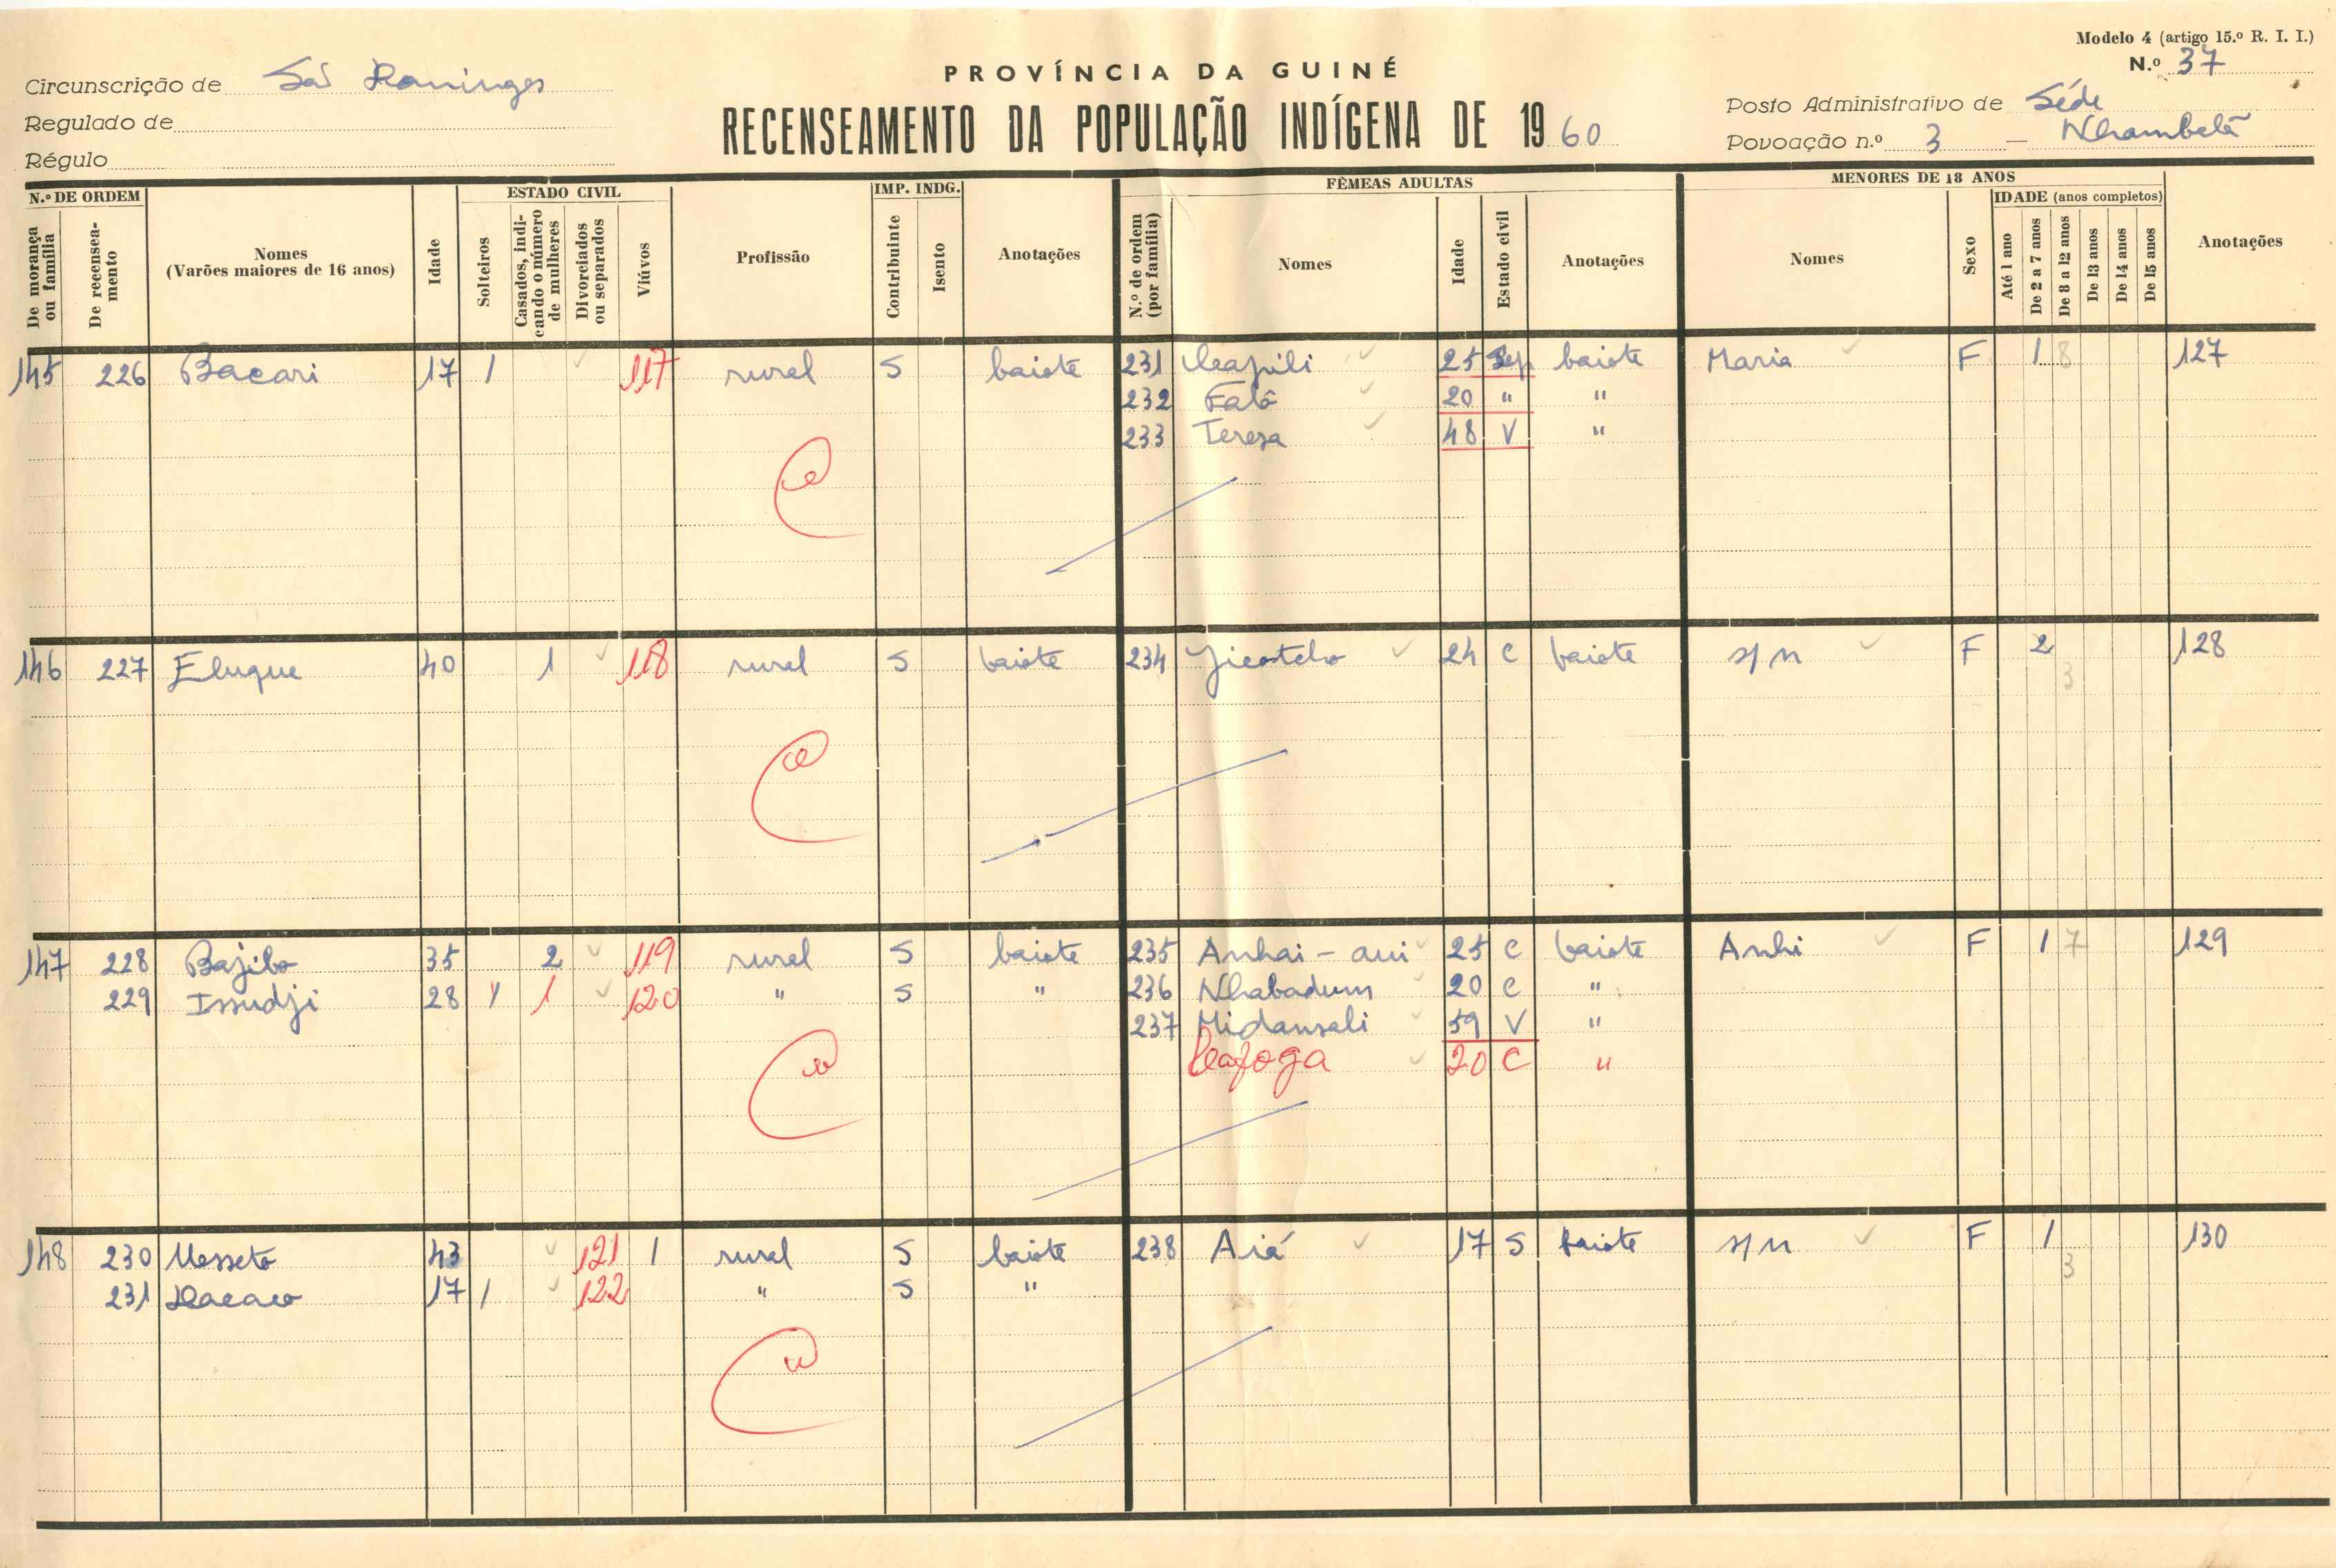 Modelo 4 (artigo 15.º R. I. I.)
N.º 37
PROVÍNCIA DA GUINÉ
RECENSEAMENTO DA POPULAÇÃO INDÍGENA DE 1960
Circunscrição de São Domingos
Regulado de
Régulo
Posto Administrativo de Séde
Povoação n.º 3 — Nhambalã
N.º DE ORDEM
De morança ou família
De recensea-mento
Nomes
(Varões maiores de 16 anos)
Idade
ESTADO CIVIL
Solteiros
Casados, indi-cando o número de mulheres
Divorciados ou separados
Viúvos
Profissão
IMP. INDG.
Contribuinte
Isento
Anotações
FÊMEAS ADULTAS
N.º de ordem (por família)
Nomes
Idade
Estado civil
Anotações
MENORES DE 18 ANOS
Nomes
Sexo
IDADE (anos completos)
Até 1 ano
De 2 a 7 anos
De 8 a 12 anos
De 13 anos
De 14 anos
De 15 anos
Anotações
145 226 Bacari 17 1 117 rural S baiote 231 25 Sep baiote Maria F 1 8 127
232 Falô 20 " "
233 Teresa 48 V "
146 227 Eluque 40 1 118 rural S baiote 234 24 C baiote s/n F 2 3 128
147 228 Bajibo 35 2 119 rural S baiote 235 Anhai - aui 25 C baiote Anhi F 1 7 129
229 Issudji 28 1 1 120 " S " 236 Nhabadum 20 C "
237 Midansali 59 V "
Cafoga 20 C "
148 230 Messeto 43 121 1 rural S baiote 238 Aiá 17 S baiote s/n F 1 3 130
231 17 1 122 " S "